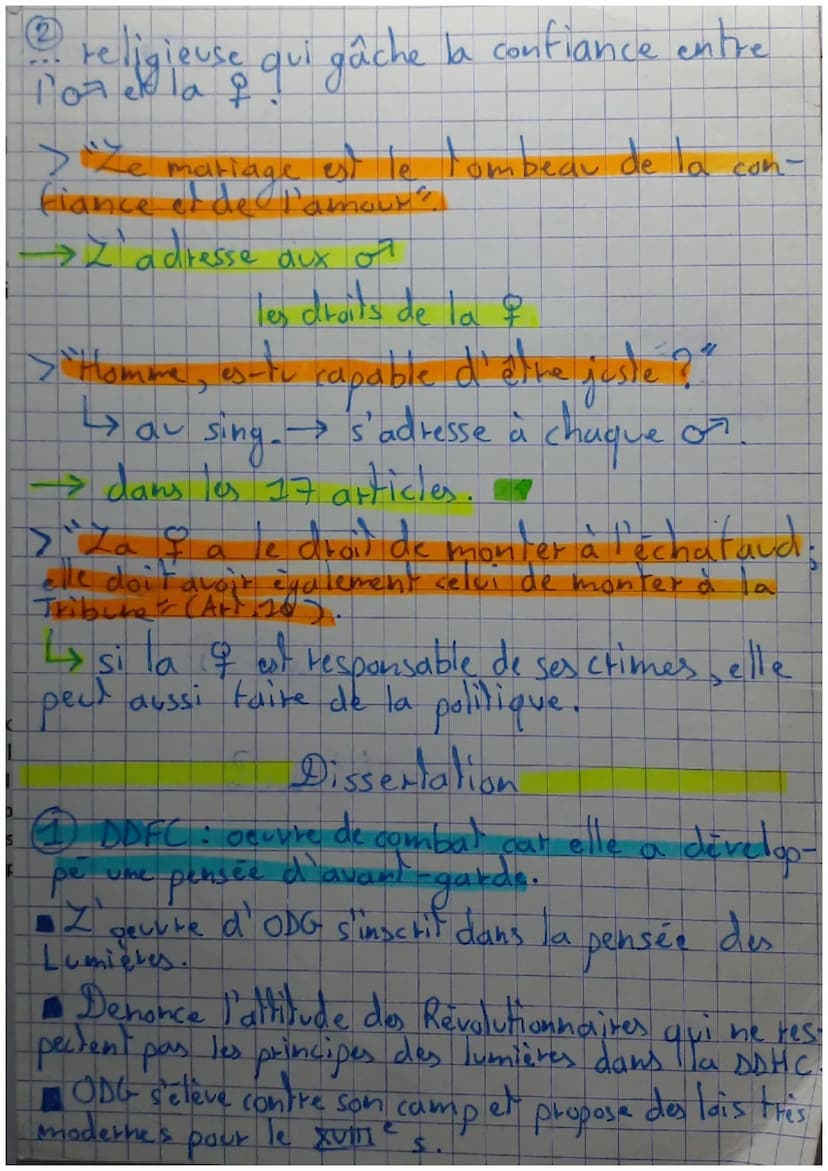 ②
... religieuse qui gâche la confiance entre
l'♂ et la ♀.
> "Le mariage est le tombeau de la con-
fiance et de l'amour".
→ L'adresse aux ♂
les droits de la ♀
> "Homme, es-tu capable d'être juste ?"
↳ au sing. → s'adresse à chaque ♂.
→ dans les 17 articles.
> "La ♀ a le droit de monter à l'échafaud;
elle doit avoir également celui de monter à la
Tribune" (Art. 10).
↳ si la ♀ est responsable de ses crimes, elle
peut aussi faire de la politique.
Dissertation
① DDFC : oeuvre de combat car elle a dévelop-
pé une pensée d'avant-garde.
▪ L'oeuvre d'ODG s'inscrit dans la pensée des
Lumières.
▪ Denonce l'attitude des Révolutionnaires qui ne res
pectent pas les principes des lumières dans la DDHC.
▪ ODG s'élève contre son camp et propose des lois très
modernes pour le XVIIIe s.